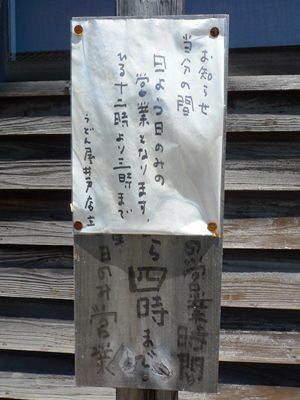 お知らせ
当分の間
日よう日のみの
営業となります。
ひる十二時より三時まで
うどん屋井戸店主
営業時間
ら四時まで。
日のみ営業